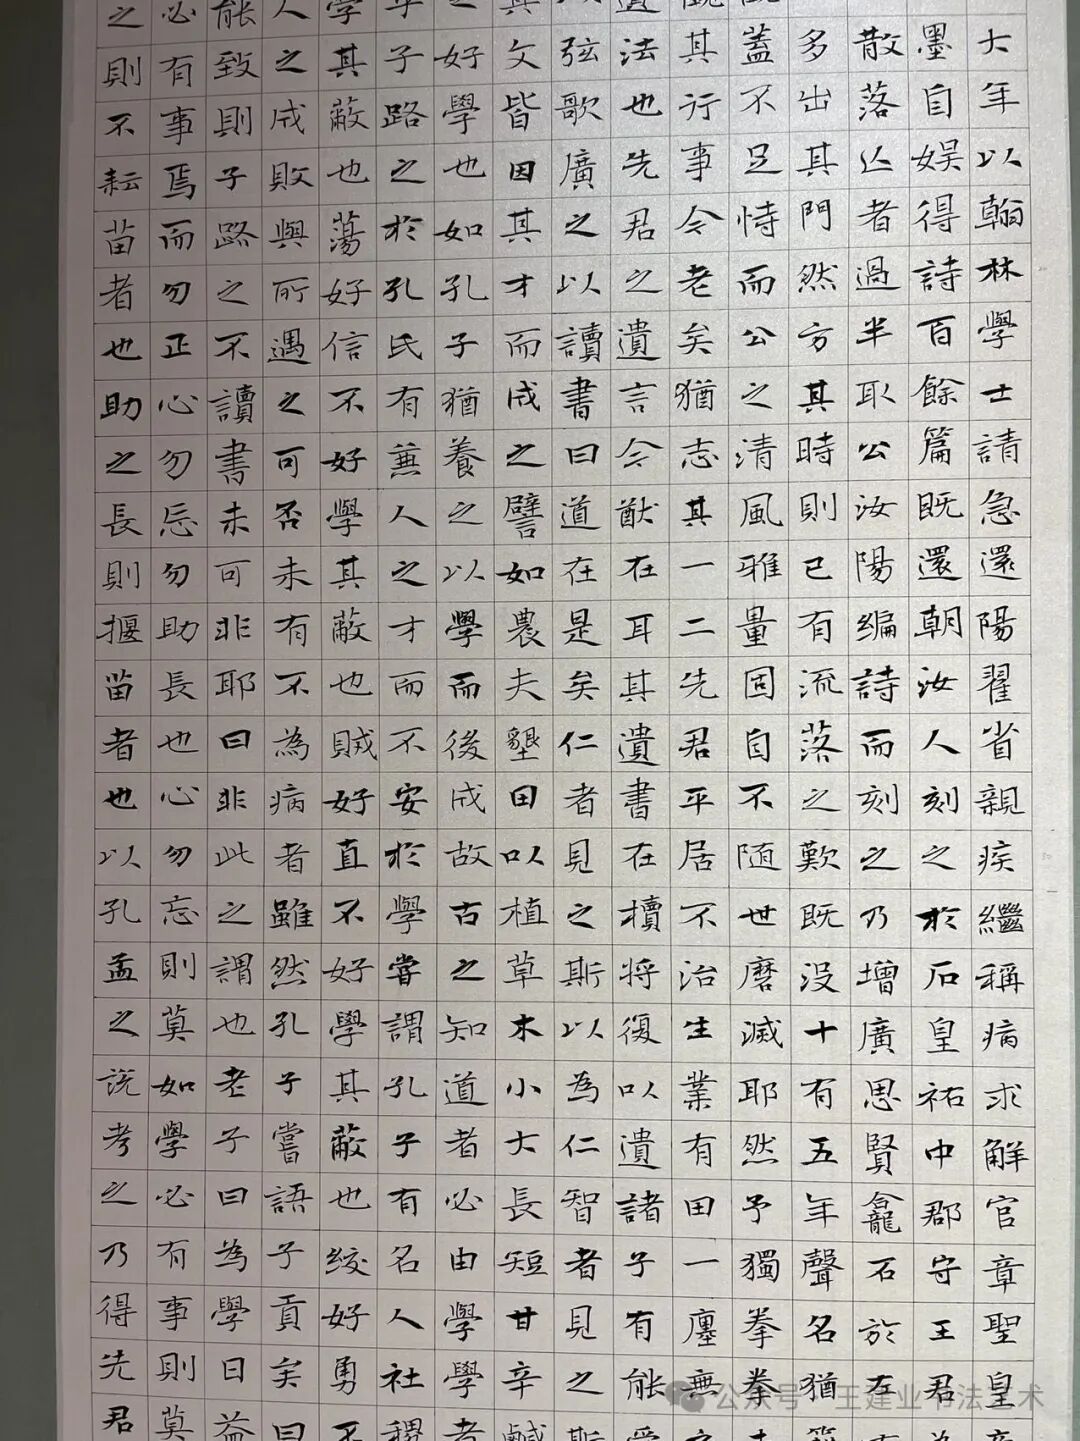 大年以翰林學士請急還陽翟省親疾繼稱病求解官章聖皇
墨自娛得詩百餘篇既還朝汝人刻之於石皇祐中郡守王君為
散落亾者過半耴公汝陽編詩而刻之乃增廣思賢龕石於左
多出其門然方其時則已有流落之歎既没十有五年聲名猶
蓋不足恃而公之清風雅量固自不随世磨滅耶然予獨拳拳
其行事今老矣猶志其一二先君平居不治生業有田一廛無
遺法也先君之遺言今猷在耳其遺書在櫝將復以遺諸子有能
以弦歌廣之以讀書曰道在是矣仁者見之斯以為仁智者見之斯
其文皆因其才而成之譬如農夫墾田以植草木小大長短甘辛鹹
之好學也如孔子猶養之以學而後成故古之知道者必由學學者
子路之於孔氏有兼人之才而不安於學嘗謂孔子有名人社稷
學其蔽也蕩好信不好學其蔽也賊好直不好學其蔽也絞好勇不
人之成敗與所遇之可否未有不為病者雖然孔子嘗語子貢矣曰
能致則子路之不讀書未可非耶曰非此之謂也老子曰為學日益
必有事焉而勿正心勿忘勿助長也心勿忘則莫如學必有事則莫
之則不耘苗者也助之長則揠苗者也以孔孟之說考之乃得先君
公众号·王建业书法艺术